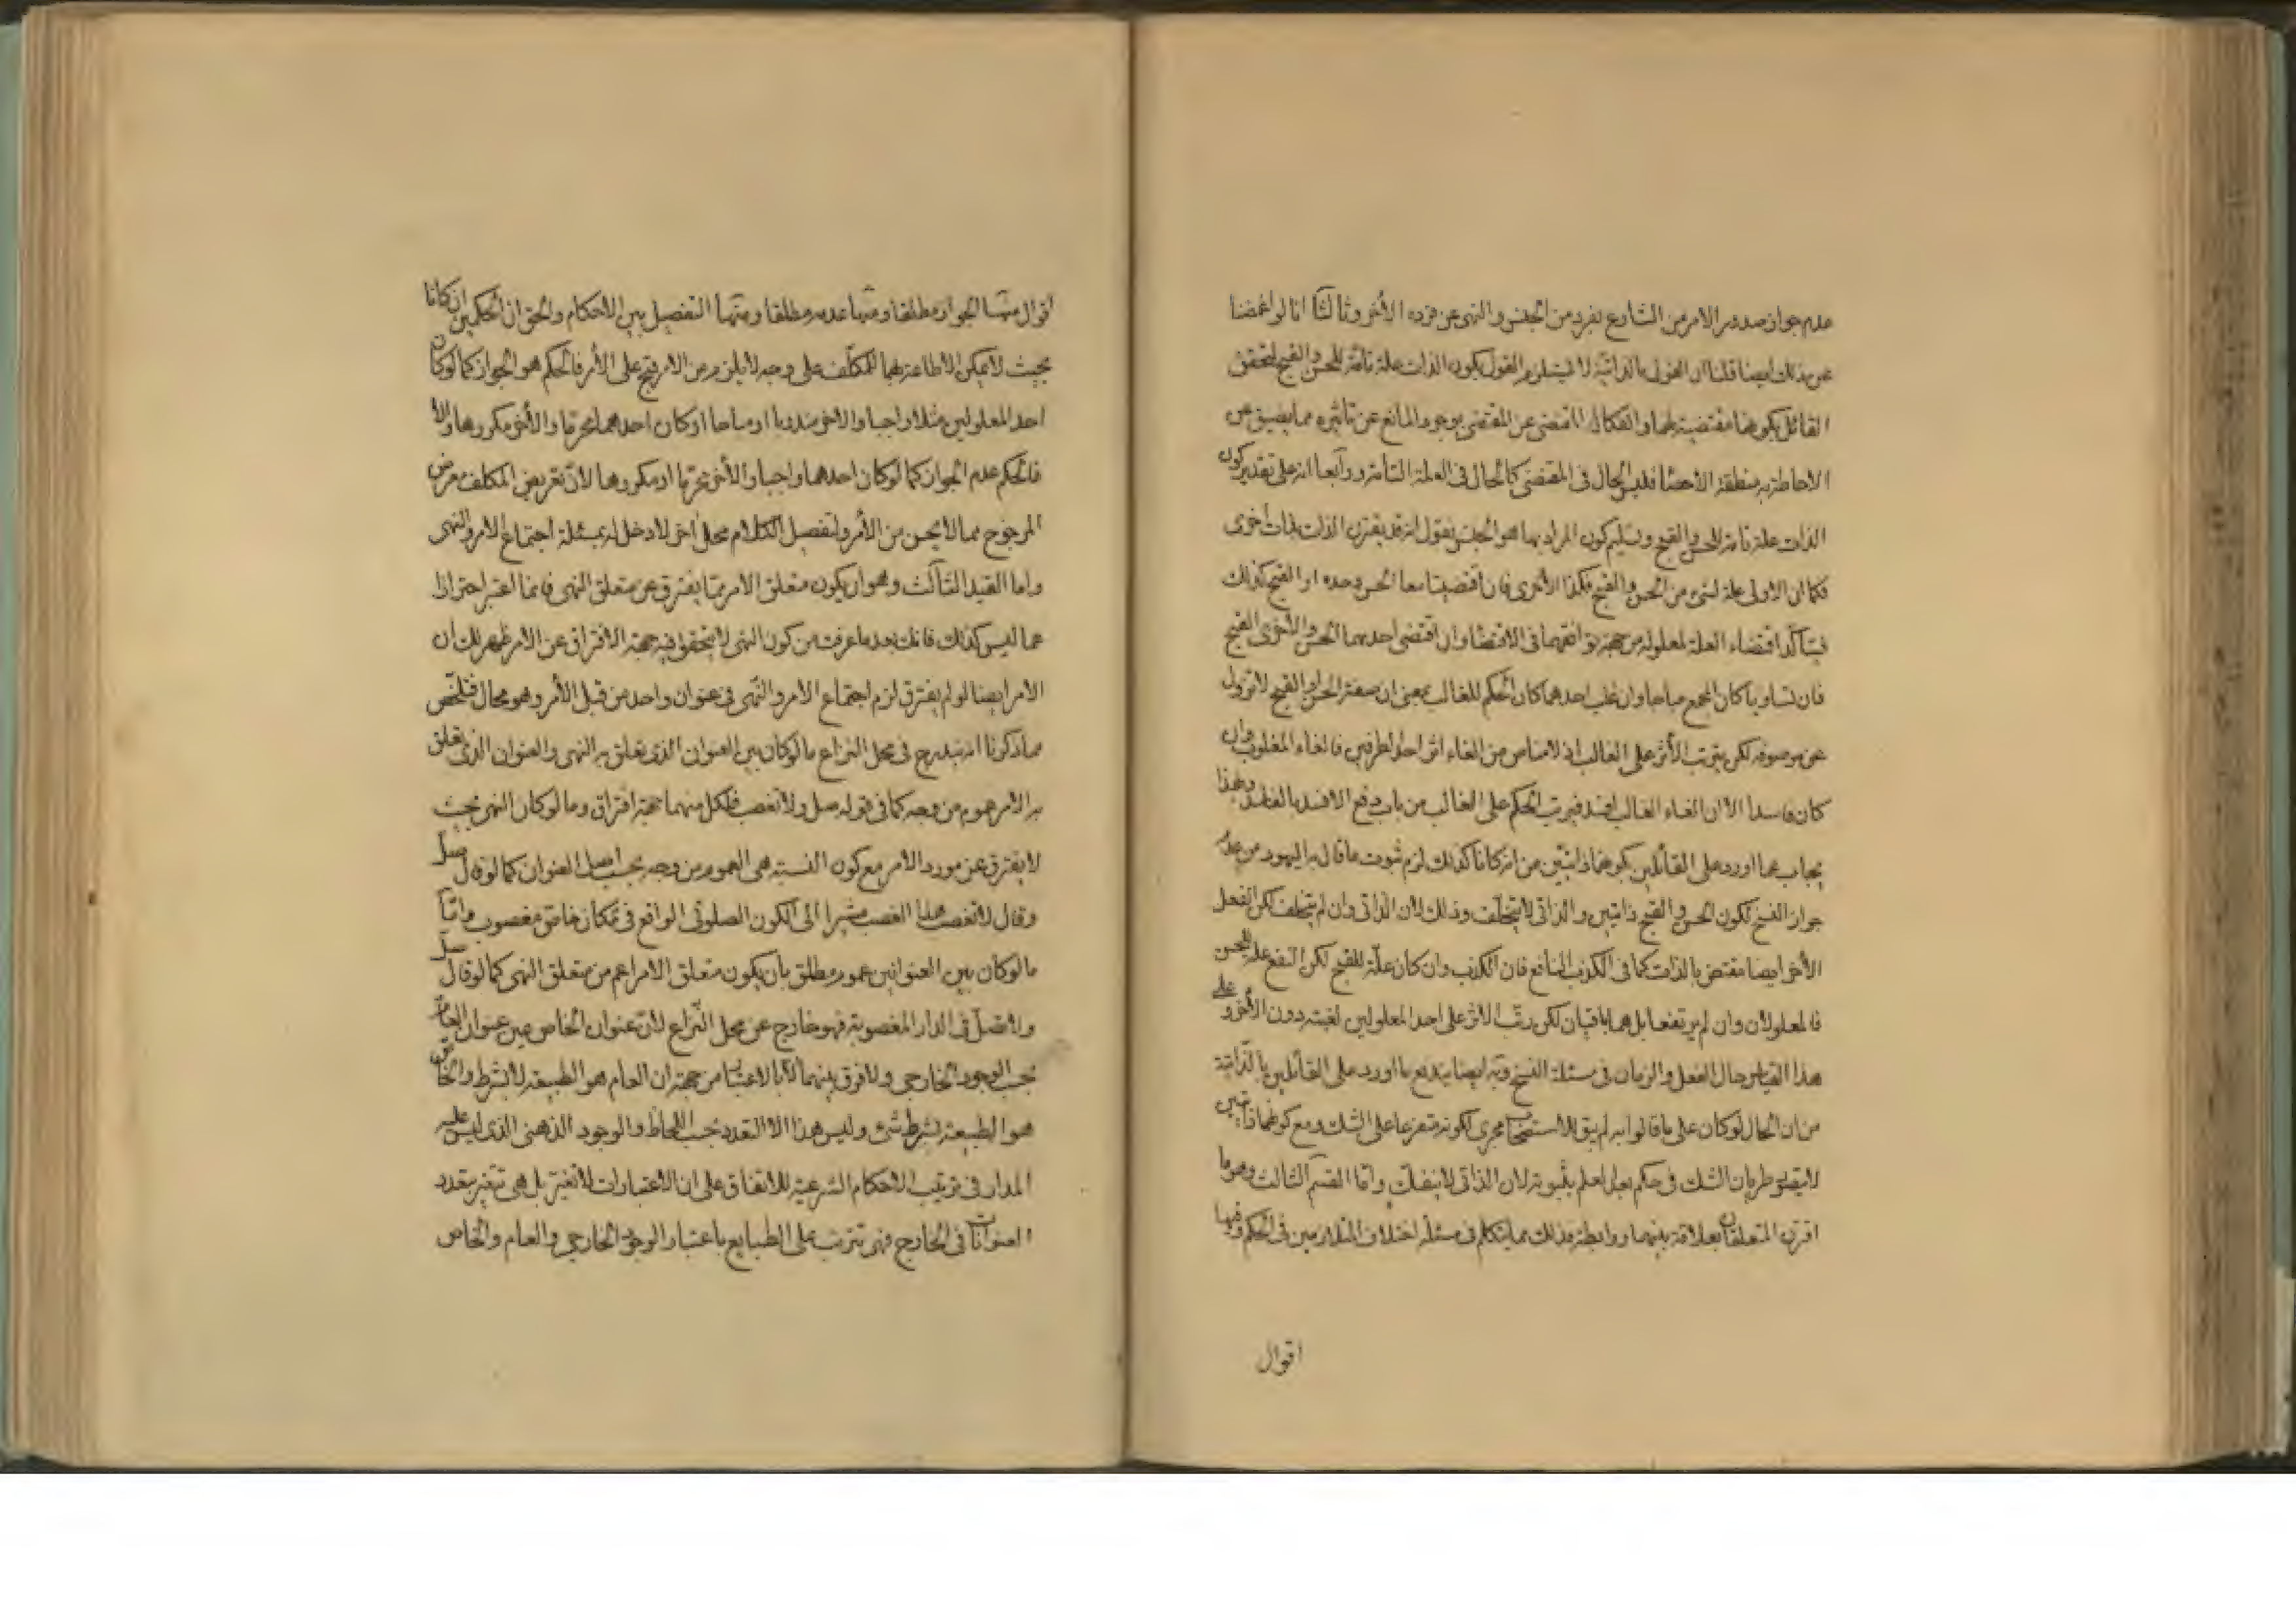 عدم جواز صدور الامر من الشارع بفرد من الجنس والنهى عن فرده الأخر وثالثا انا لو اغمضنا
عن ذلك ايضا قلنا ان القول بالذاتية لا يستلزم القول بكون الذات علة تامة للحسن والقبح لتحقق
القائل بكونها مقتضية لهما وانفكاك المقتضى عن المقتضى بوجود المانع عن تاثيره مما يضيق عن
الاحاطة به منطقة الأحصاء فليس الحال فى المقتضى كالحال فى العلة التامة ورابعا انه على تقدير كون
الذات علة تامة للحسن والقبح وتسليم كون المراد بها هو الجنس نقول انه قد يقترن الذات بذات اخرى
فكما ان الاولى علة لشئ من الحسن والقبح فكذا الأخرى فان اقتضيتا معا الحسن وحده او القبح كذلك
فيتأكد اقتضاء العلة لمعلوله من جهة توافقهما فى الاقتضاء وان اقتضى احديهما الحسن والأخرى القبح
فان تساويا كان المجمع مباحا وان غلب احدهما كان الحكم للغالب بمعنى ان صفة الحسن او القبح لا تزول
عن موصوفه لكن يترتب الأثر على الغالب اذ لا مناص من الغاء اثر احد الطرفين فالغاء المغلوب وان
كان فاسدا الا ان الغاء الغالب افسد فيرتب الحكم على الغالب من باب دفع الافسد بالفاسد وبهذا
يجاب عما اورد على القائلين بكونهما ذاتيين من انه لو كانا كذلك لزم ثبوت ما قال به اليهود من عدم
جواز النسخ لكون الحسن والقبح ذاتيين والذاتى لا يتخلف وذلك لان الذاتى وان لم يتخلف لكن الفعل
الأخر ايضا مقتض بالذات كما فى الكذب النافع فان الكذب وان كان علّة للقبح لكن النفع علة للحسن
فالمعلولان وان لم يرتفعا بل هما باقيان لكن رتّب الاثر على احد المعلولين لغلبته دون الأخر و على
هذا القياس حال الفعل والزمان فى مسئلة النسخ وبه ايضا يندفع ما اورد على القائلين بالذّاتية
من ان الحال لو كان على ما قالوا به لم يبق للاستصحاب مجرى لكونه متفرعا على الشك ومع كونهما ذاتيين
لا يتصور طريان الشك فى حكم بعد العلم بثبوته لان الذاتى لا ينفك وامّا القسم الثالث وهو ما
اقترن المتعلقان بعلاقة بينهما ورابطة فذلك مما يتكلم فى مسئلة اختلاف المتلازمين فى الحكم وفيها
اقوال
اقوال منها الجواز مطلقا ومنها عدمه مطلقا ومنها التفصيل بين الاحكام والحق ان الحكمين ان كانا
بحيث لا يمكن الاطاعة بهما للمكلّف على وجه لا يلزم من الامر قبح على الأمر فالحكم هو الجواز كما لو كان
احد المعلولين مثلا واجبا والاخر مندوبا او مباحا او كان احدهما محرما والأخر مكروها والا
فالحكم عدم الجواز كما لو كان احدهما واجبا والأخر محرّما او مكروها لانّ تعريض المكلف معرض
المرجوح مما لا يحسن من الأمر ولتفصيل الكلام محل اخر لا دخل له بمسئلة اجتماع الامر والنهى
واما القيد الثالث وهو ان يكون متعلق الامر مما يفترق عن متعلق النهى فانما اعتبر احترازا
عما ليس كذلك فانك بعد ما عرفت من كون النهى لا يتحقق فيه جهة الافتراق عن الامر ظهر لك ان
الامر ايضا لو لم يفترق لزم اجتماع الامر والنّهى فى عنوان واحد من قبل الأمر وهو محال فتلخّص
مما ذكرنا انه يندرج فى محل النزاع ما لو كان بين العنوان الذى تعلق به النهى والعنوان الذى تعلق
به الامر عموم من وجه كما فى قوله صل ولا تغصب فلكل منهما جهة افتراق وما لو كان النهى بحيث
لا يفترق عن مورد الامر مع كون النسبة هى العموم من وجه بحسب اصل العنوان كما لو قال صلّ
وقال لا تغصب هذا الغصب مشيرا الى الكون الصلوتى الواقع فى مكان خاص مغصوب وامّا
ما لو كان بين العنوانين عموم مطلق بان يكون متعلق الامر اعم من متعلق النهى كما لو قال صلّ
ولا تصلّ فى الدار المغصوبة فهو خارج عن محل النّزاع لانّ عنوان الخاص عين عنوان العام
بحسب الوجود الخارجى ولا فرق بينهما الا بالاعتبار من جهة ان العام هو الطبيعة لا بشرط والخاص
هو الطبيعة بشرط شئ وليس هذا الا التعدد بحسب اللحاظ والوجود الذهنى الذى ليس عليه
المدار فى ترتيب الاحكام الشرعية للاتفاق على ان الاعتبارات لا تغيّر بل هى تتغير بتعدد
العنوانات فى الخارج فهى تترتب على الطبايع باعتبار الوجود الخارجى والعام والخاص